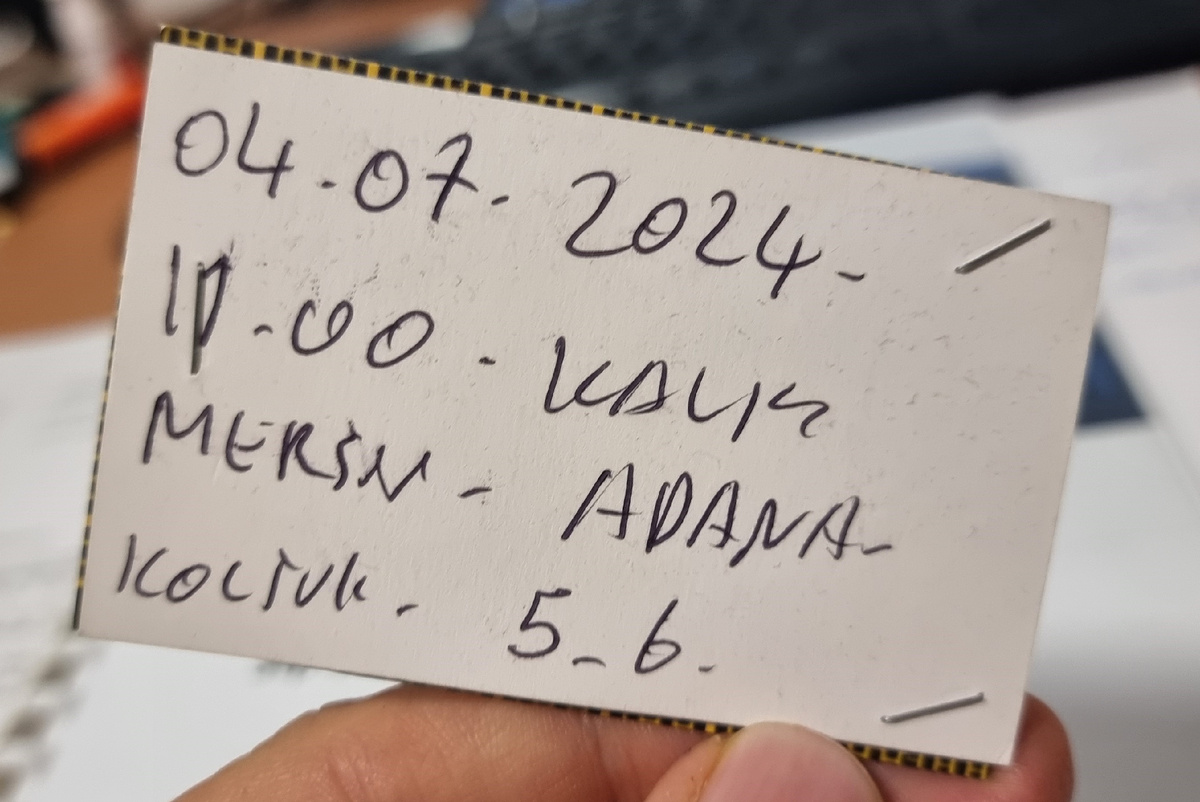 04.07.2024-
.00 - KALKIŞ
MERSİN - ADANA-
KOLTUK. 5-6.